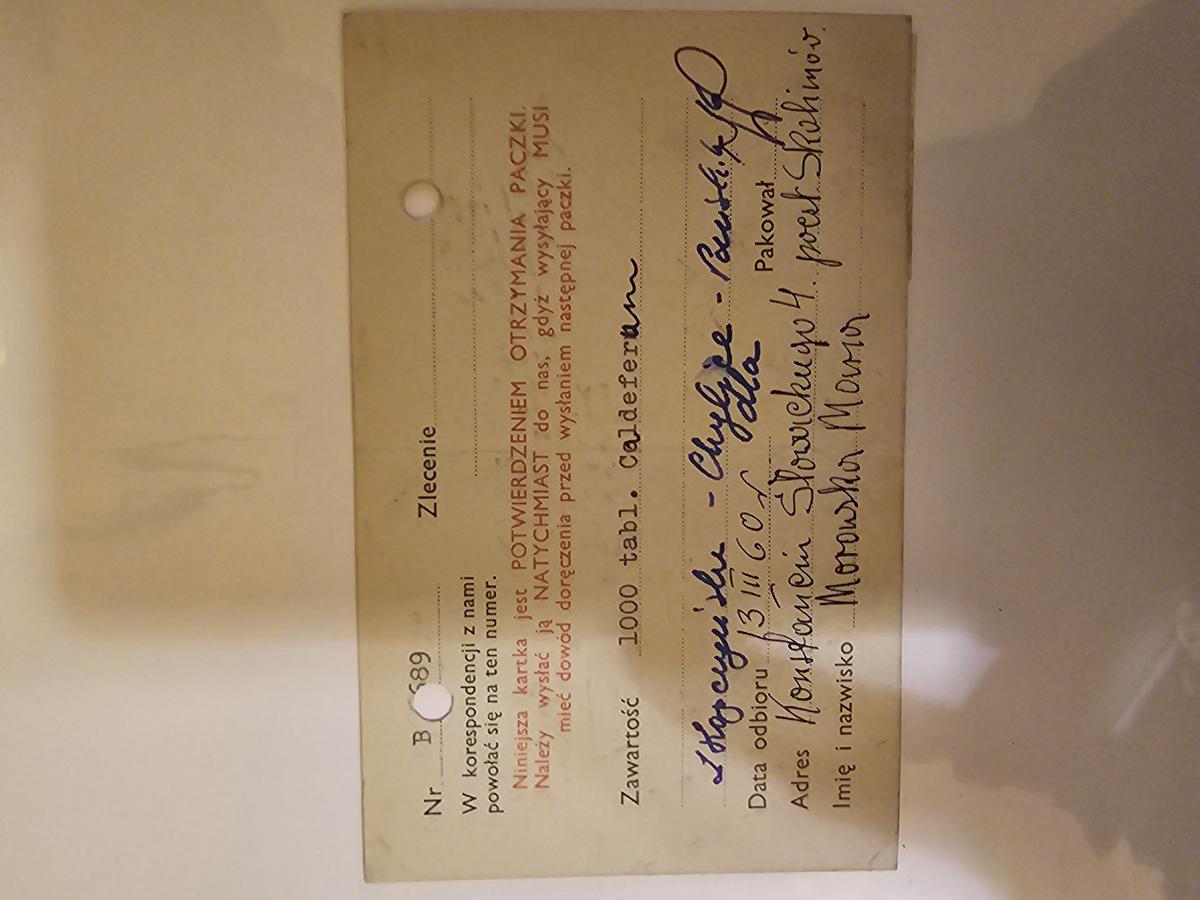 Nr. B 689 Zlecenie
W korespondencji z nami
powołać się na ten numer.
Niniejsza kartka jest POTWIERDZENIEM OTRZYMANIA PACZKI.
Należy wysłać ją NATYCHMIAST do nas, gdyż wysyłający MUSI
mieć dowód doręczenia przed wysłaniem następnej paczki.
Zawartość 1000 tabl. Caldeferum
- Chylice -
dla
Data odbioru 13 III 60 r Pakował
Adres Konstancin Słowackiego 4. poczt Skolimów.
Imię i nazwisko Morowska Maria